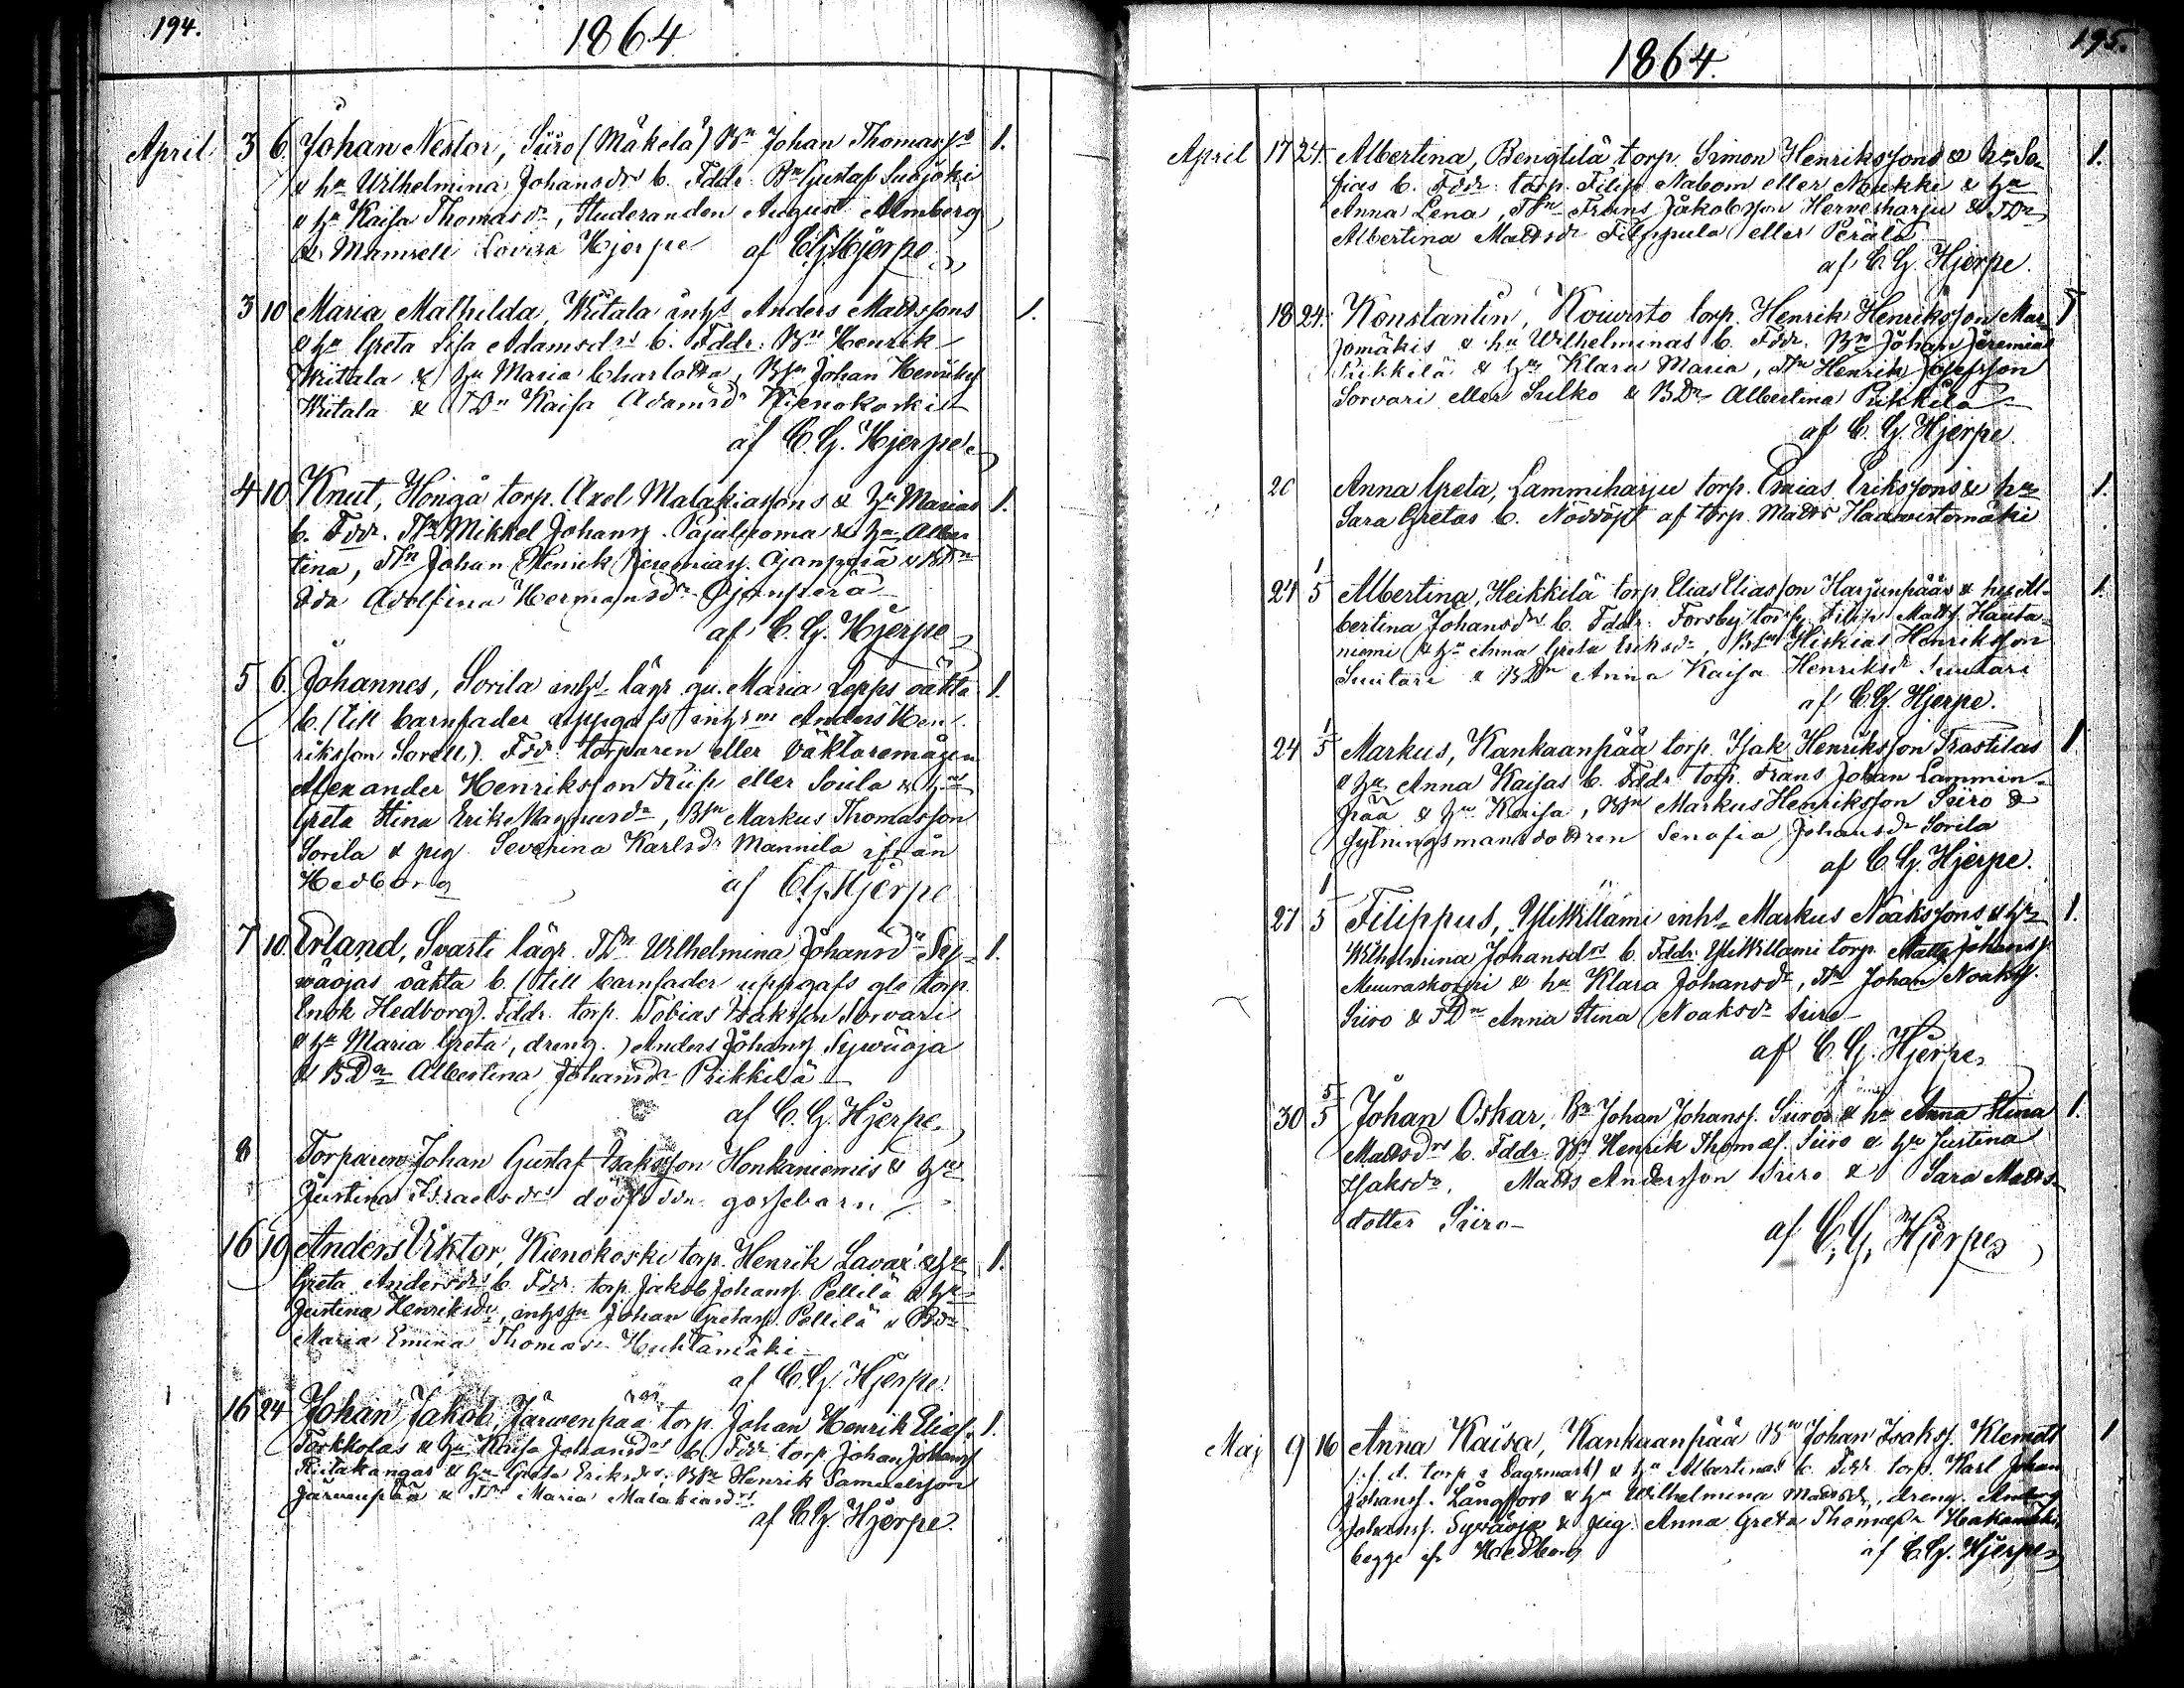 194.
1864
April 3 6. Johan Nestor, Siiro (Mäkelä) Bn Johan Thomass. 1.
& hu Wilhelmina Johansdrs b. Fddr. Bn Gustaf Suojoki
& hu Kaisa Thomasdr, Studeranden August Almberg
& Mamsell Lovisa Hjerpe af C.G. Hjerpe
3 10 Maria Mathilda, Witala inhs Anders Mattssons 1.
& hu Greta Lisa Adamsdrs b. Fddr. Bn Henrik
Witala & hu Maria Charlotta, Bsn Johan Henriks
Witala & TDn Kaisa Adamsdr Kienokoski
af C.G. Hjerpe
4 10 Knut, Honga torp. Axel Malakiassons & hu Marias 1.
b. Fddr. Tn Mikkel Johans. Pajuluoma & hu Alber
tina, Tn Johan Henrik Jeremias. Ojanperä & BDn
Ida Adolfina Hermansdr Ojanperä
af C.G. Hjerpe
5 6. Johannes, Sorila inhs lägr qu. Maria Lepps oäkta 1.
b. (till barnfader uppgafs inhsn Anders Hen
riksson Sorell). Fddr. torparen eller Väktaremågen
Alexander Henriksson Kiip eller Soula & hu
Greta Stina Erik Magnusdr, Bsn Markus Thomasson
Sorila & pig. Severina Karlsdr Mannila ifrån
Hedborg af C.G. Hjerpe
7 10. Erland, Svarti lägr. TDn Wilhelmina Johansdr Sy- 1.
wäojas oäkta b. (till barnfader uppgafs gle torp.
Enok Hedborg). Fddr. torp. Tobias Isaksson Sorvari
& hu Maria Greta, dreng. Anders Johans. Sywäoja
& BDn Albertina Johansdr Prikkilä
af C.G. Hjerpe
8 Torparen Johan Gustaf Isaksson Honkaniemis & hu
Justina Israelsdrs dödfödde gossebarn
16 19 Anders Viktor, Kienokoski torp. Henrik Lavax' & hu 1.
Greta Andersdrs b. Fddr. torp. Jakob Johanss. Pellilä & hu
Justina Henriksdr, inhsn Johan Gretass. Pellilä & BDn
Maria Emina Thomasdr Huhtamäki
af C.G. Hjerpe
16 24 Johan Jakob, Järwenpää torp. Johan Henrik Elias. 1.
Torkkolas & hu Kaisa Johansdrs b. Fddr torp. Johan Johanss
Riitakangas & hu Greta Eriksdr, Bsn Henrik Samuelsson
Järwenpää & Maria Malakiasdr
af C.G. Hjerpe.
195.
1864.
April 17 24. Albertina, Bengtilä torp. Simon Henrikssons & hu So 1.
fias b. Fddr. torp. Filip Nabom eller Noukki & hu
Anna Lena, Tsn Frans Jakobsson Hernesharju & TDn
Albertina Mattsdr Filppula eller Perälä
af C.G. Hjerpe.
18 24. Konstantin, Kouvisto torp. Henrik Henriksson Mar
jomäkis & hu Wilhelminas b. Fddr. Bn Johan Jeremias
& hu Klara Maria, Tn Henrik Josefsson
Sorvari eller Sulko & BDr Albertina Prikkilä
af C.G. Hjerpe
20 Anna Greta, Lammiharju torp. Esaias Erikssons & hu 1.
Sara Gretas b. Nöddöpt af torp. Matts Haawistomäki
24 1/5 Albertina, Heikkilä torp. Elias Eliasson Harjunpääs & hu Al- 1.
bertina Johansdrs b. Fddr. Forsby torp. Filip Matts. Hauta
niemi & hu Anna Greta Eriksdr, Bsn Hiskias Henriksson
Suutari & BDn Anna Kaisa Henriksdr Suutari
af C.G. Hjerpe.
24 1/5 Markus, Kankaanpää torp. Isak Henriksson Trastilas 1
& hu Anna Kaisas b. Fddr torp. Frans Johan Lammin-
pää & hu Kaisa, Bsn Markus Henriksson Siiro &
fylningsmansdottren Senafia Johansdr Sorila
af C.G. Hjerpe.
27 1/5 Filippus, YliWillami inhs Markus Noakssons & hu 1.
Wilhelmina Johansdrs b. Fddr. YliWillami torp. Matts Johanss
Muuraskorpi & hu Klara Johansdr, Tn Johan Noakss.
Siiro & TDn Anna Stina Noaksdr Siiro
af C.G. Hjerpe
30 5/5 Johan Oskar, Bn Johan Johanss. Siiros & hu Anna Stina 1.
Mattsdrs b. Fddr. Bn Henrik Thomas. Siiro & hu Justina
Isaksdr, Matts Andersson Siiro & Sara Matts
dotter Siiro
af C.G. Hjerpe
Maj 9 16 Anna Kaisa, Kankaanpää Bn Johan Isakss. Klemets 1
(f.d. torp. i Dagsmark) & hu Albertinas b. Fddr. torp. Karl Johan
Johanss. Långfors & hu Wilhelmina Mattsdr, dreng. Anders
Johanss. Sywäoja & pig. Anna Greta Thomasdr Hakamäki
begge ifr. Hedborg af C.G. Hjerpe